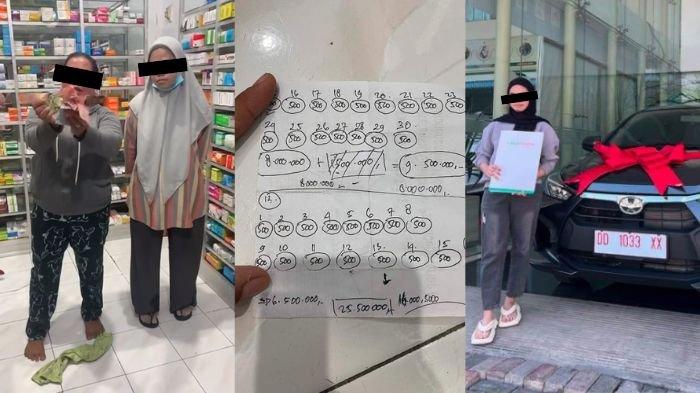 16 17 18 19 20 21 22 23
500 500 500 500 500 500 500 500
24 25 26 27 28 29 30
500 500 500 500 500 500 500
8.000.000 + = 9.500.000,-
8000000,-
12.
1 2 3 4 5 6 7 8
500 500 500 500 500 500 500 500
9 10 11 12 13. 14. 15
500 500 500 500 500 500 500
6.500.000,- 25.500.000,-
DD 1033 XX